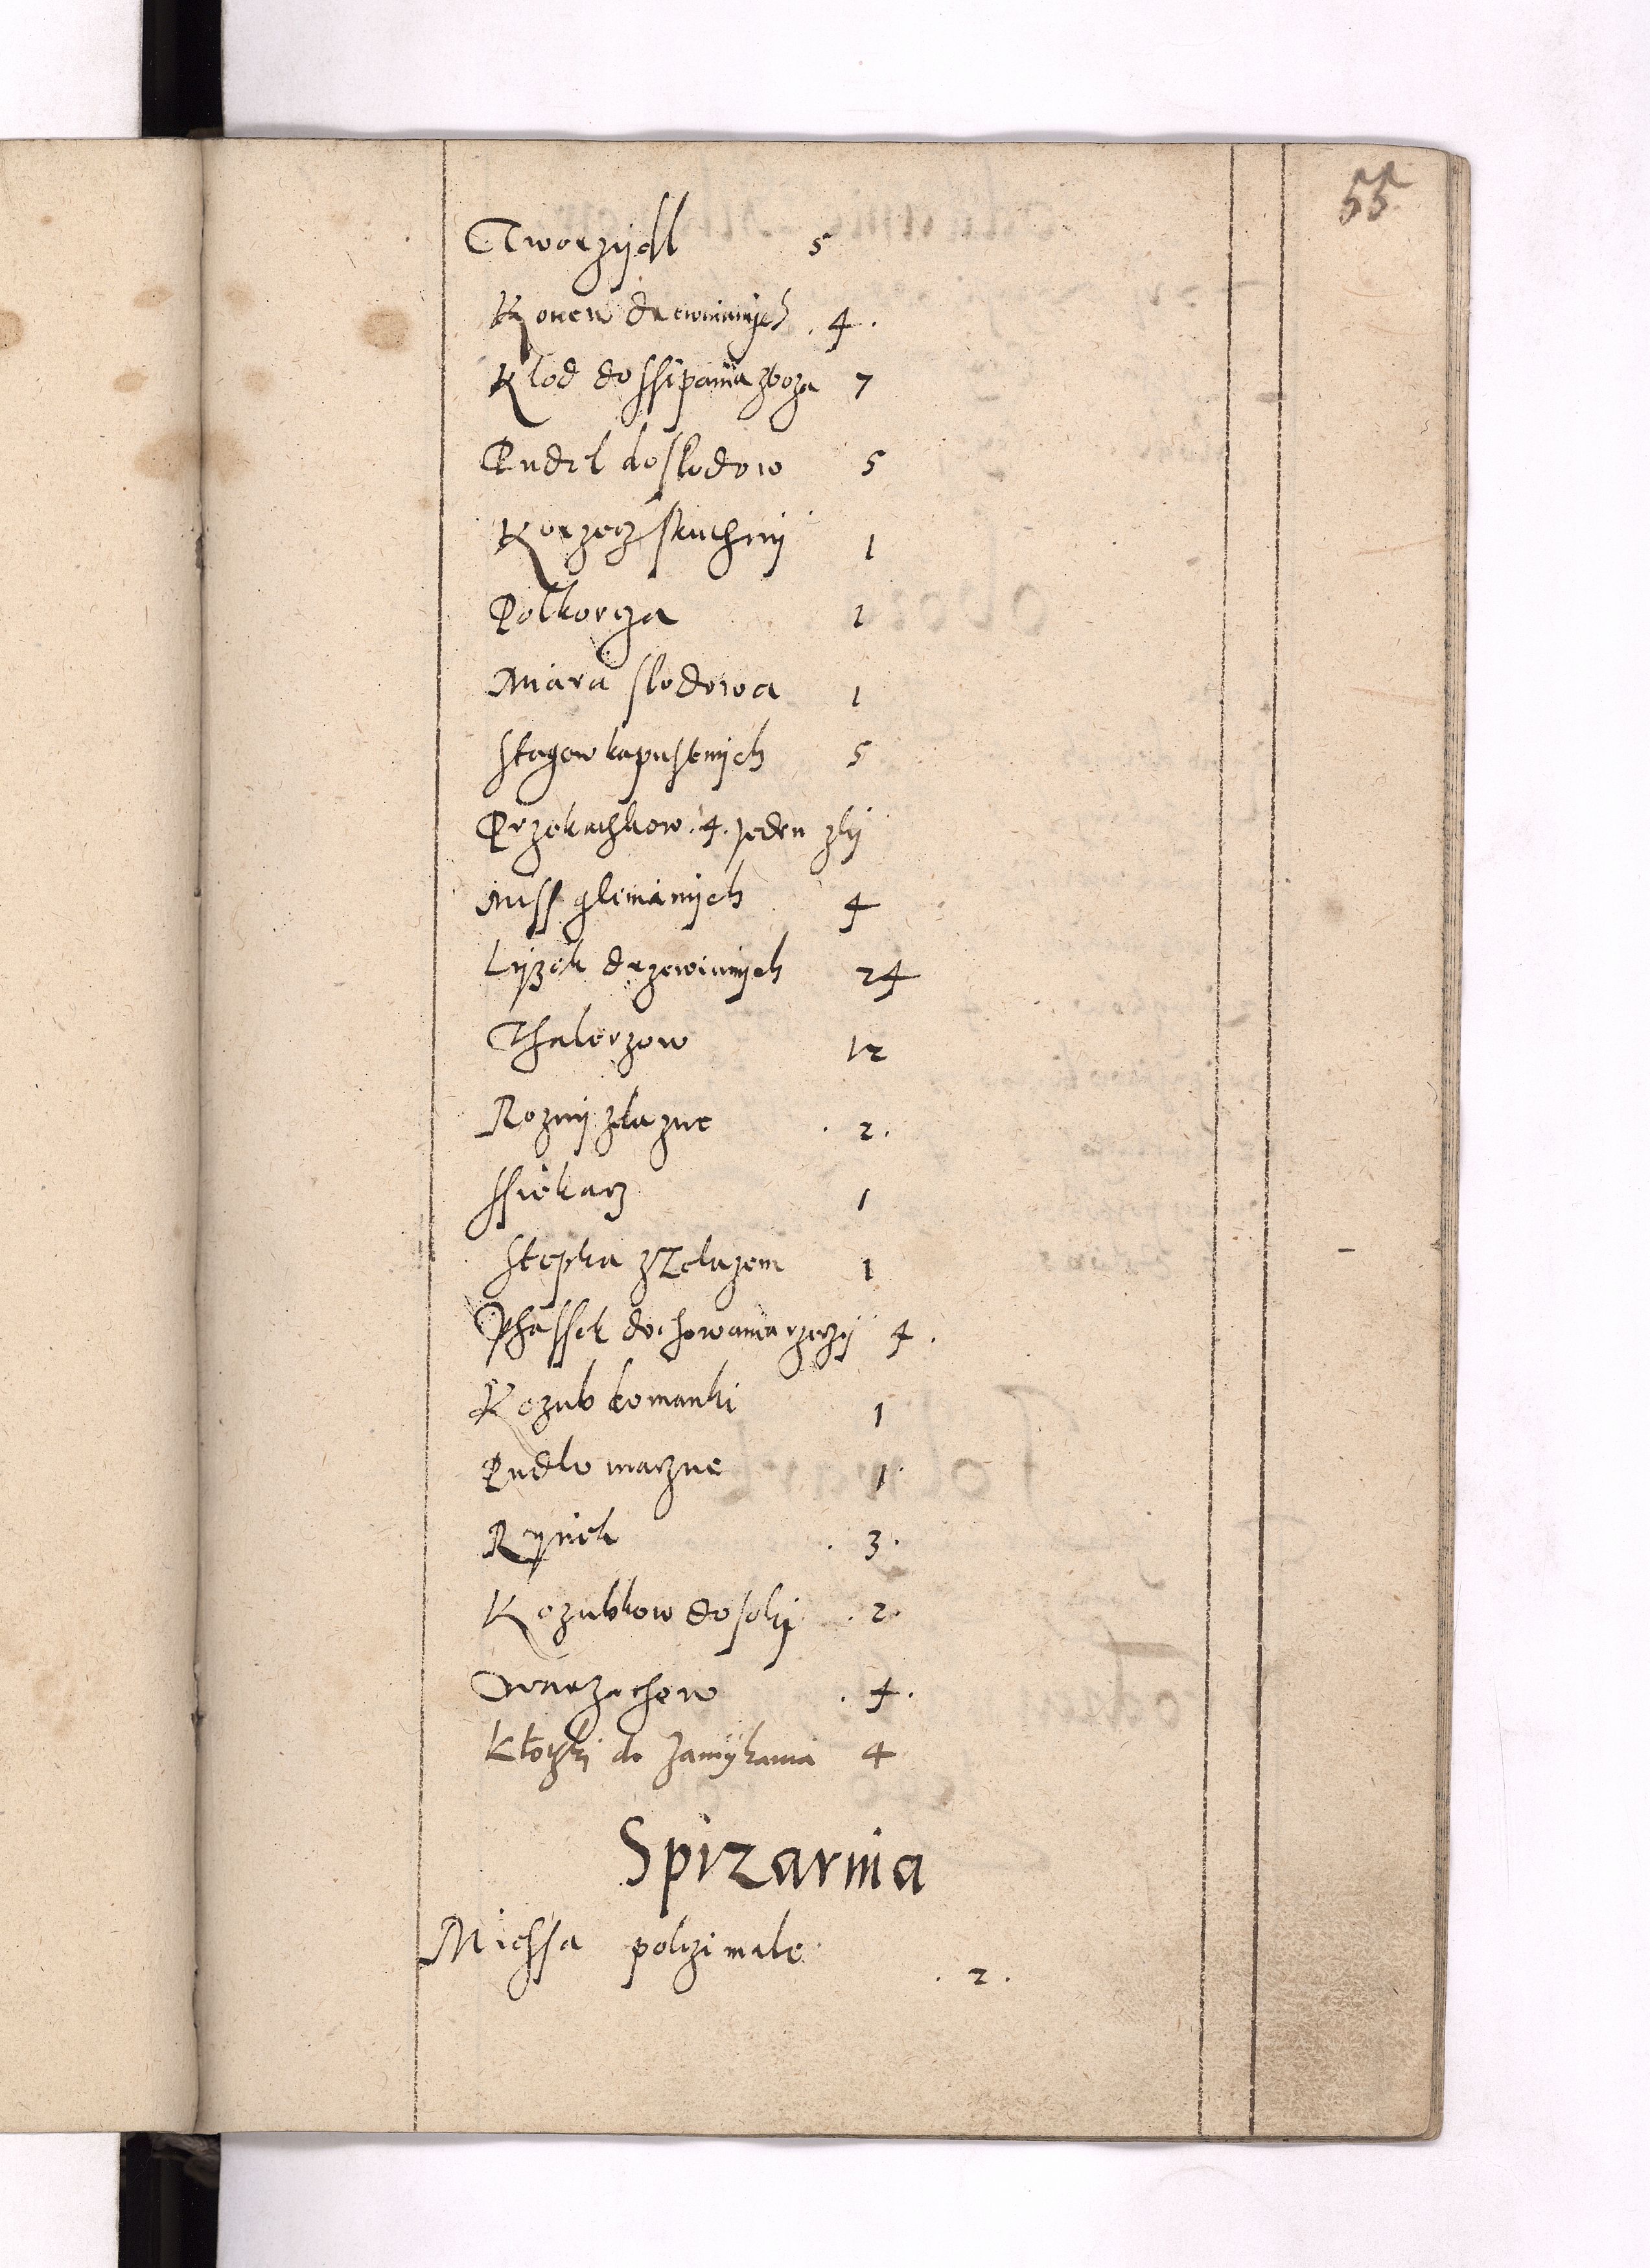 55
Tworzydl 5
Konew drewnianych . 4 .
Klod do ssipania zboza 7
Pudel do slodow 5
Korzecz skuthny 1
Polkorcza 1
Miara slodowa 1
Stagow kapustnych 5
Przekachkow . 4 . jeden zly
Miss glinianych 4
Lyzek drzewianych 24
Thalerzow 12
Rozny zelazne . 2 .
Ssiekacz 1
Stepka z Zelazem 1
Phassek do chowania rzeczy 4 .
Kozub komanki 1
Pudlo maczne 1
Rynek . 3 .
Kozubkow do soly . 2 .
Warzachow . 4 .
Kłotki do zamykania 4
Spizarnia
Miessa polczi male . 2 .